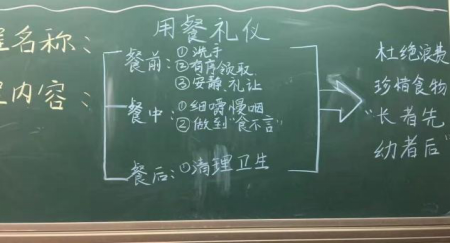 用餐礼仪
名称：
内容：
餐前：①洗手
②有序领取
③安静礼让
餐中：①细嚼慢咽
②做到“食不言”
餐后：①清理卫生
杜绝浪费
珍惜食物
“长者先
幼者后”